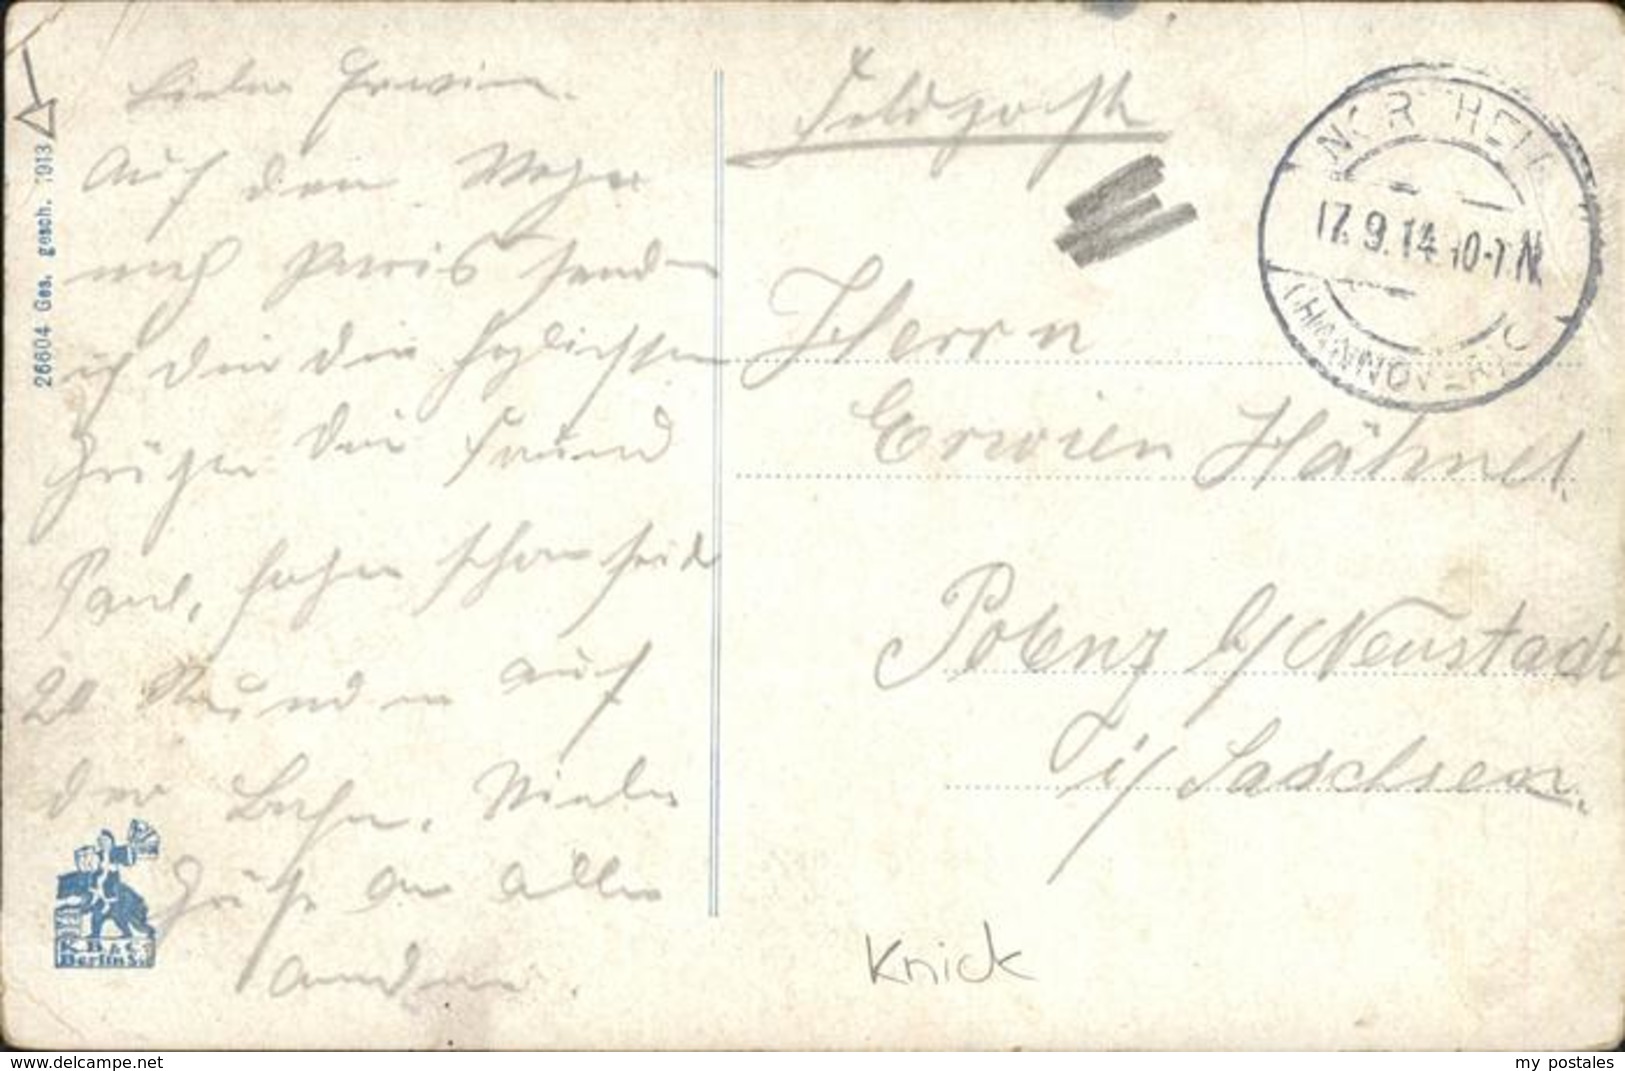 Lieber Erwin.
Auf dem Wege
nach Paris sende
ich dir die herzlichsten
Grüße dein Freund
Paul, fahren schon seit
20 Stunden auf
der Bahn. Viele
Grüße an alle
andern.
Feldpost
Herrn
Erwien Hähnel.
Polenz b/Neustadt
i/Sachsen.
NORTHEIM
17.9.14.10-11N.
(HANNOVER) C
26604 Ges. gesch. 1913
K.B.&C:
Berlin S.
Knick
www.delcampe.net
my_postales